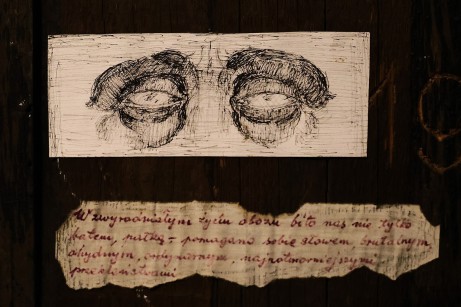 W zwyrodniałym życiu obozu bito nas nie tylko
batem, pałką – pomagano sobie słowem brutalnym,
ohydnym, ordynarnym, najpotworniejszymi
przekleństwami
19